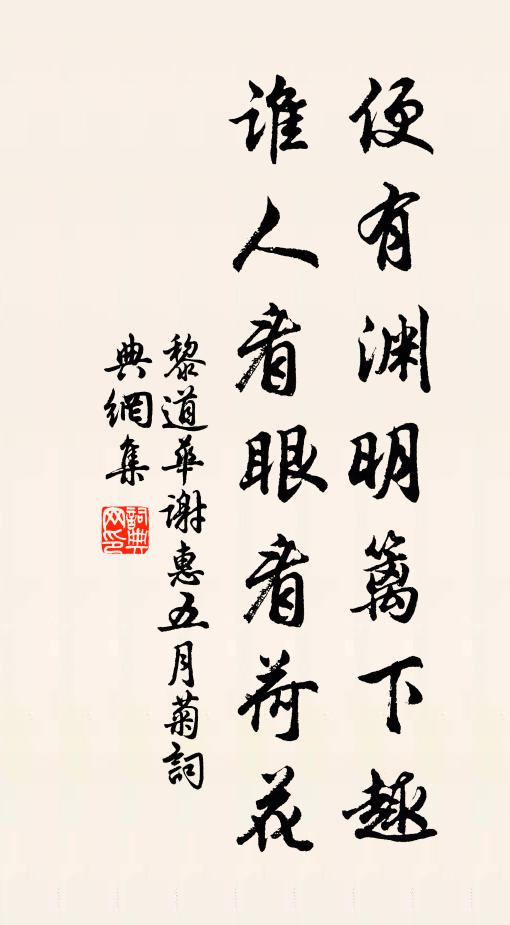 便有渊明篱下趣
谁人看眼看荷花
黎道華谢惠五月菊詞
典網集
詞典
网印